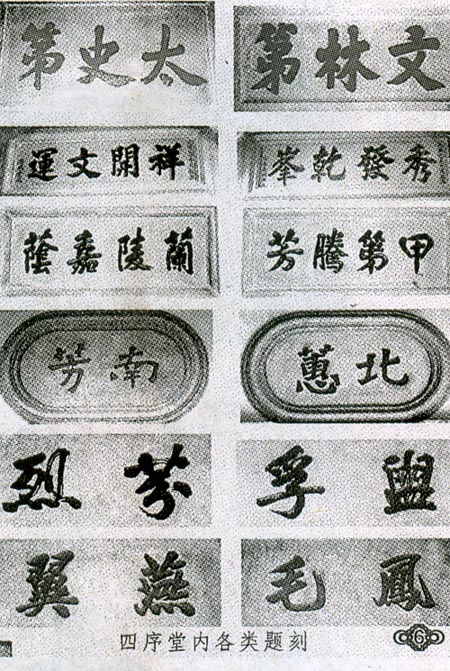 文林第
太史第
秀發乾峯
祥開文運
甲第騰芳
蘭陵嘉蔭
北蕙
南芳
盥孚
芬烈
鳳毛
燕翼
四序堂内各类题刻
6